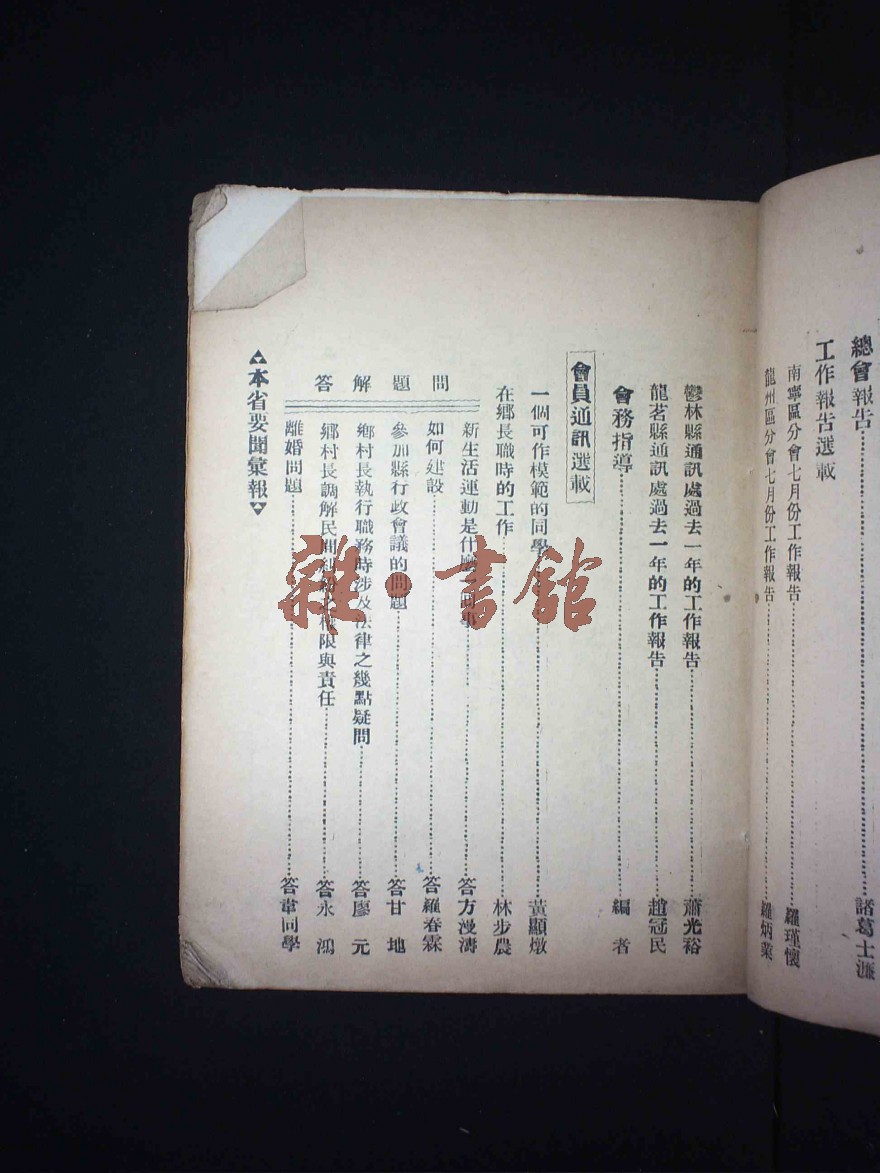 總會報告……諸葛士濂
工作報告選載
南寧區分會七月份工作報告……羅瑾懷
龍州區分會七月份工作報告……羅炳業
鬱林縣通訊處過去一年的工作報告……蕭光裕
龍茗縣通訊處過去一年的工作報告……趙冠民
會務指導……編者
會員通訊選載
一個可作模範的同學……黃顯燉
在鄉長職時的工作……林步農
問題解答
新生活運動是什麼一回事……答方漫濤
如何建設……答羅春霖
參加縣行政會議的問題……答甘地
鄉村長執行職務時涉及法律之幾點疑問……答廖元
鄉村長調解民間糾紛之權限與責任……答永鴻
離婚問題……答韋同學
本省要聞彙報
雜·書館